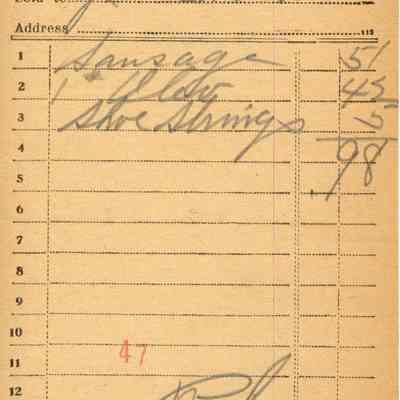 Address 112
1 Sausage 51
2 1# Oleo 45
3 Shoe Strings 5
4 98
5
6
7
8
9
10
47
11
12